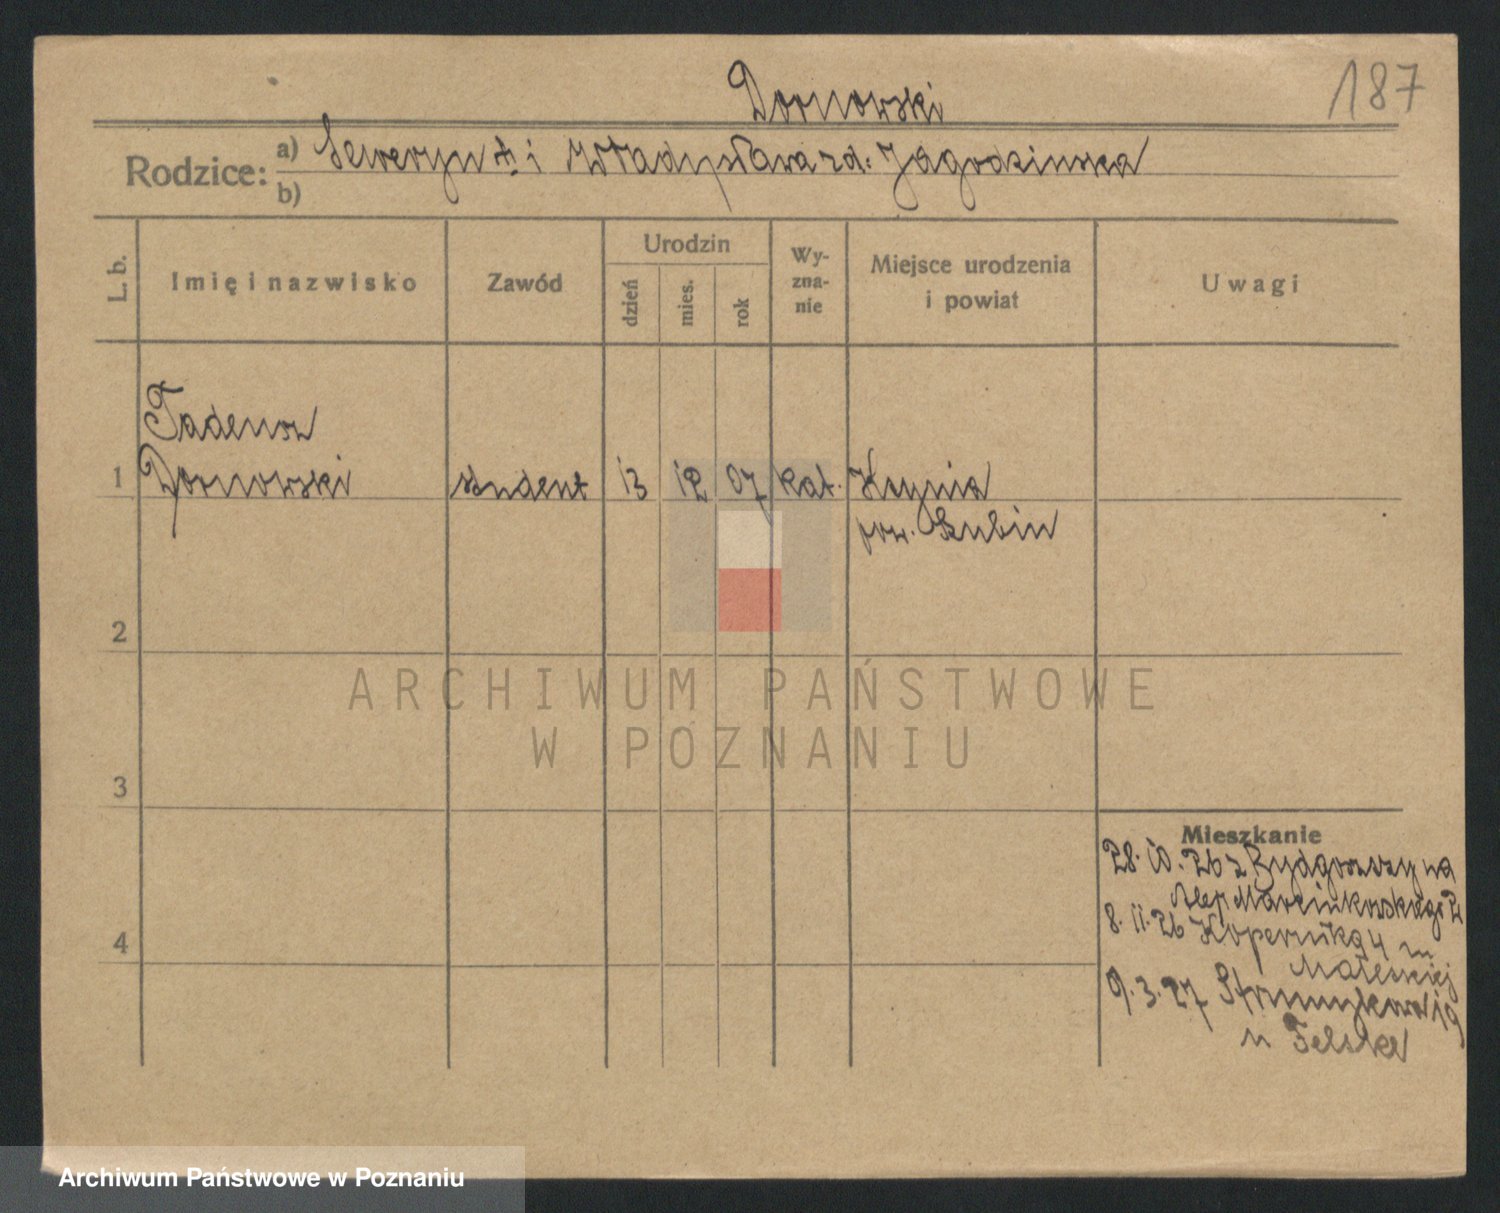 187
Dornowski
Rodzice: a) Seweryn † i Władysława zd: Jagodzinska
b)
L. b. Imię i nazwisko Zawód Urodzin dzień mies. rok Wy-zna-nie Miejsce urodzenia i powiat Uwagi
Tadeusz
1 Dornowski student 13 12 07 kat. Kcynia
pow. Szubin
2
ARCHIWUM PAŃSTWOWE
W POZNANIU
3
Mieszkanie
28. 10. 26 z Bydgoszczy na
Alej Marcinkowskiego 2
8. 11. 26 Kopernika 4 m
4
9. 3. 27 Strumykowa 19
u Felske
Archiwum Państwowe w Poznaniu